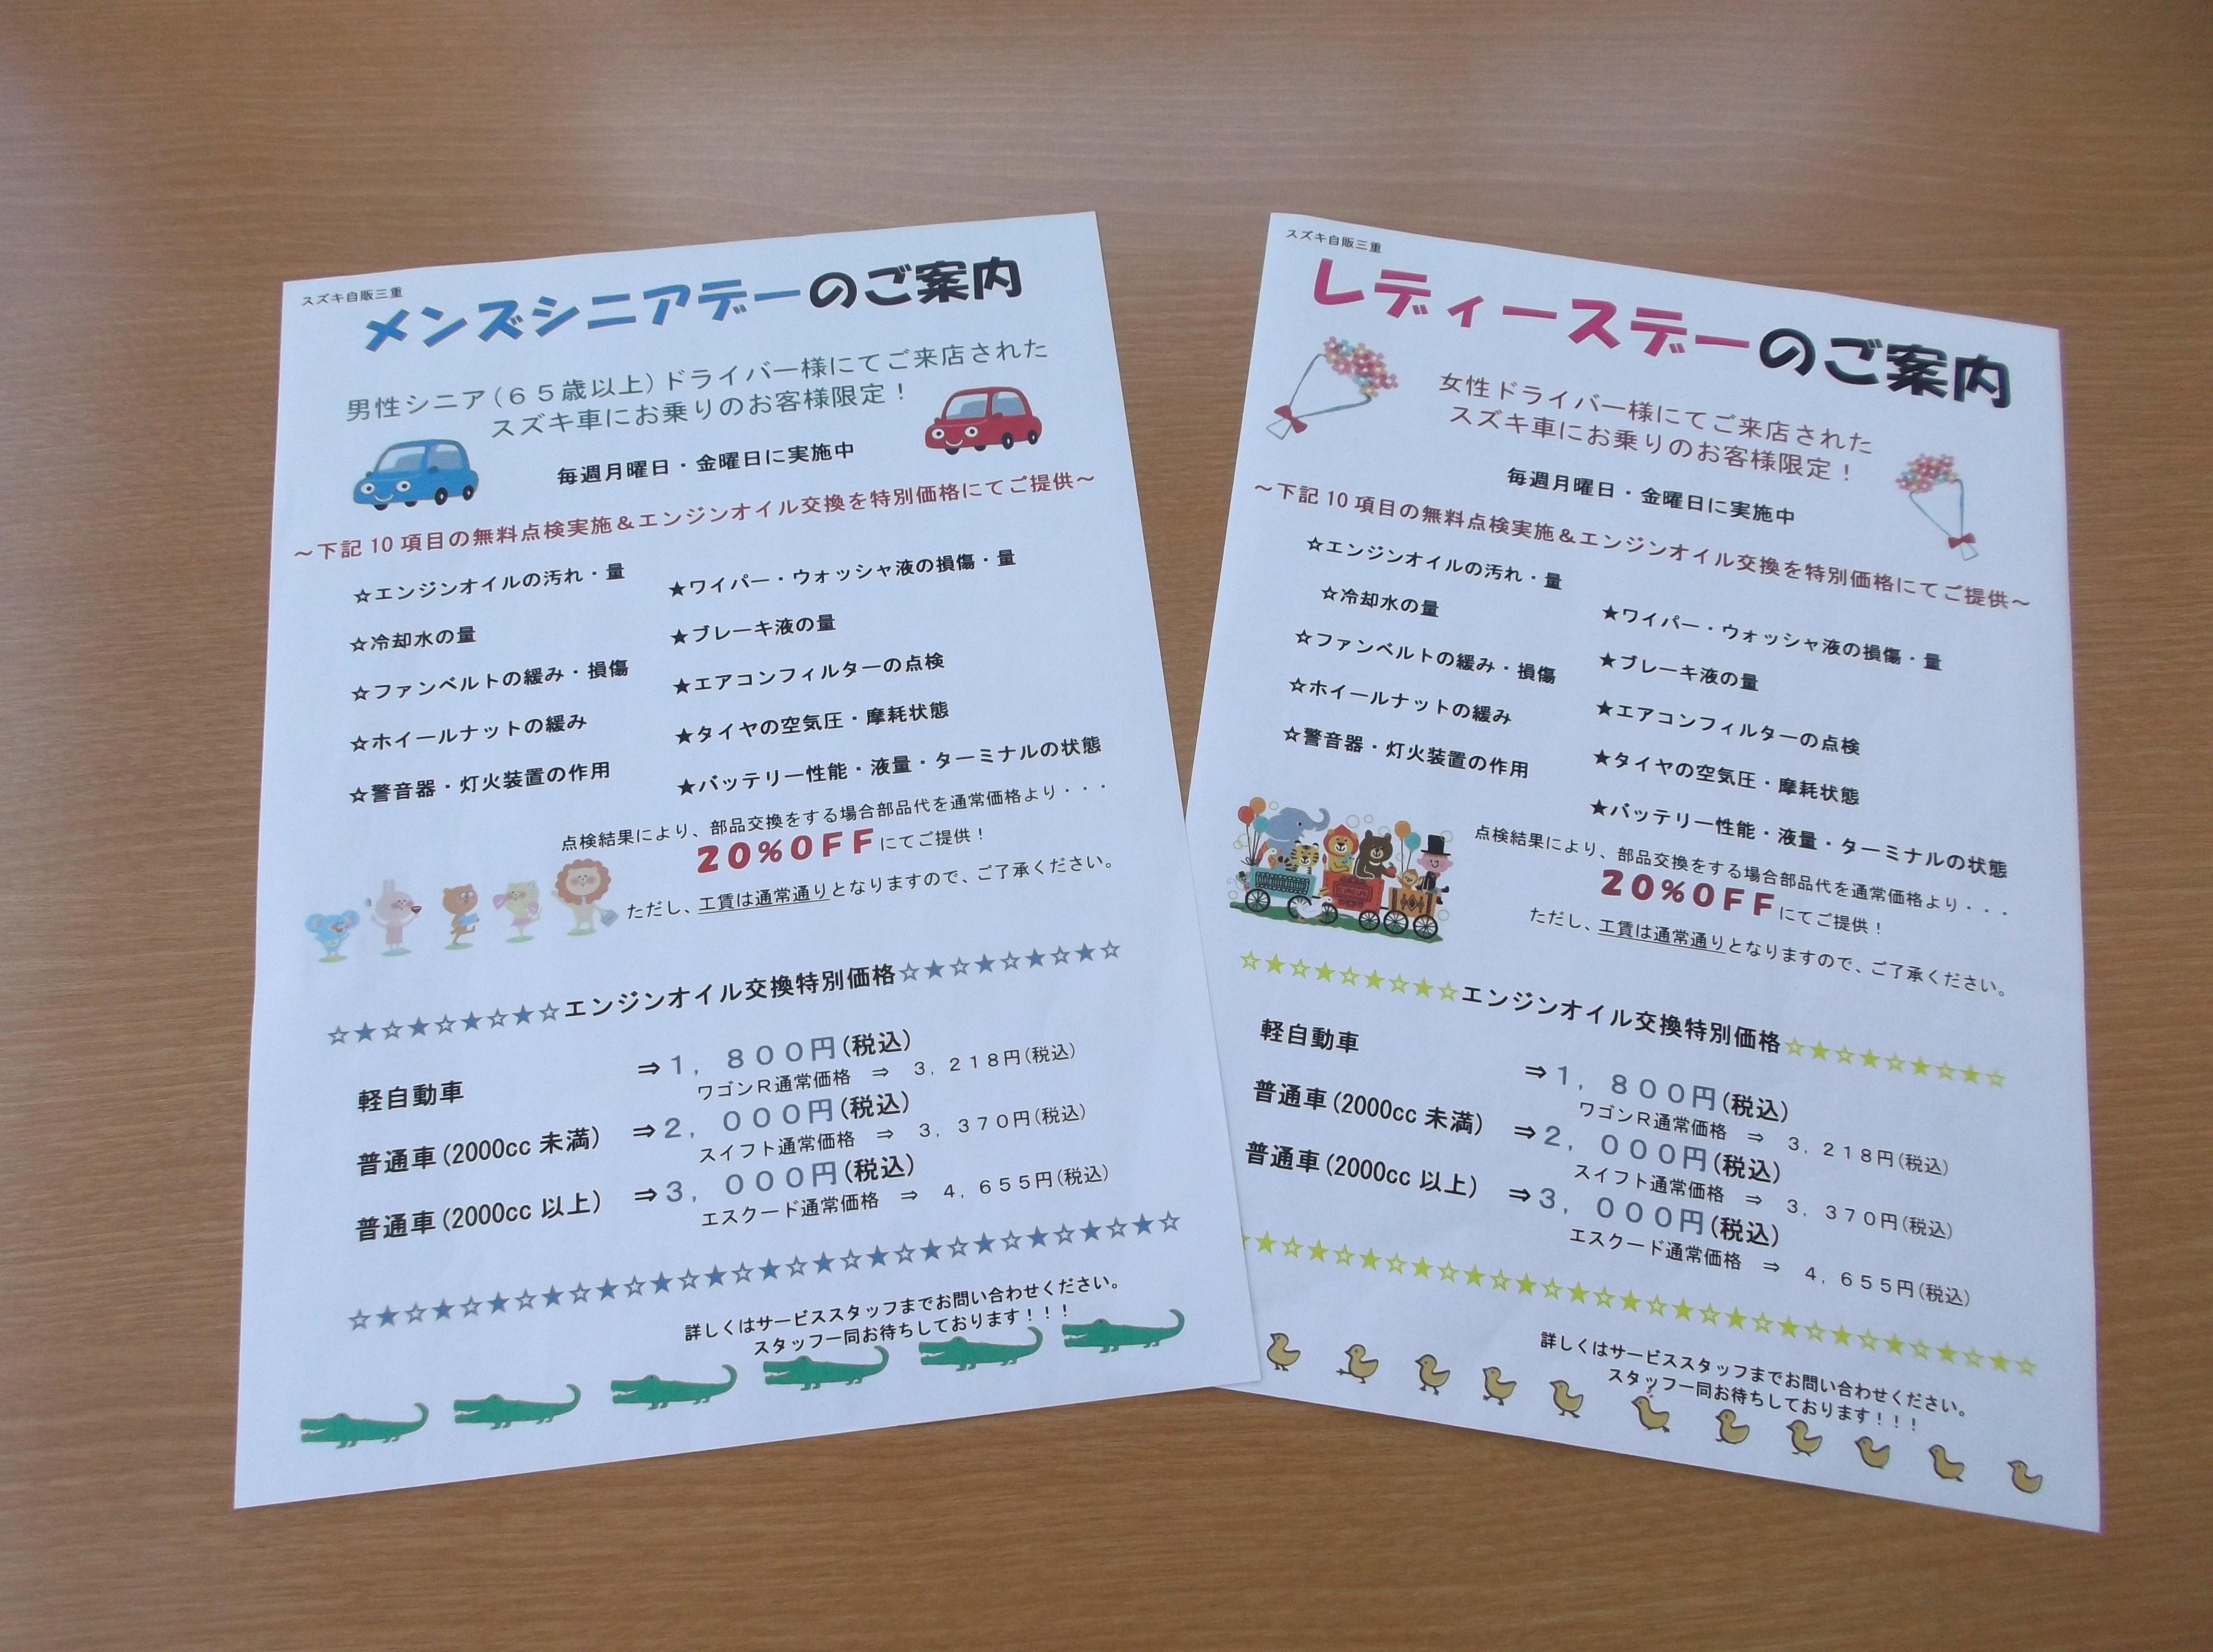 スズキ自販三重
メンズシニアデーのご案内
男性シニア(65歳以上)ドライバー様にてご来店された
スズキ車にお乗りのお客様限定!
毎週月曜日・金曜日に実施中
~下記10項目の無料点検実施&エンジンオイル交換を特別価格にてご提供~
☆エンジンオイルの汚れ・量
★ワイパー・ウォッシャ液の損傷・量
☆冷却水の量
★ブレーキ液の量
☆ファンベルトの緩み・損傷
★エアコンフィルターの点検
☆ホイールナットの緩み
★タイヤの空気圧・摩耗状態
☆警音器・灯火装置の作用
★バッテリー性能・液量・ターミナルの状態
点検結果により、部品交換をする場合部品代を通常価格より・・・
20%OFFにてご提供!
ただし、工賃は通常通りとなりますので、ご了承ください。
☆★☆★☆★☆★☆エンジンオイル交換特別価格☆★☆★☆★☆★☆
軽自動車 ⇒1,800円(税込)
ワゴンR通常価格 ⇒ 3,218円(税込)
普通車(2000cc未満) ⇒2,000円(税込)
スイフト通常価格 ⇒ 3,370円(税込)
普通車(2000cc以上) ⇒3,000円(税込)
エスクード通常価格 ⇒ 4,655円(税込)
詳しくはサービススタッフまでお問い合わせください。
スタッフ一同お待ちしております!!!
スズキ自販三重
レディースデーのご案内
女性ドライバー様にてご来店された
スズキ車にお乗りのお客様限定!
毎週月曜日・金曜日に実施中
~下記10項目の無料点検実施&エンジンオイル交換を特別価格にてご提供~
☆エンジンオイルの汚れ・量
★ワイパー・ウォッシャ液の損傷・量
☆冷却水の量
★ブレーキ液の量
☆ファンベルトの緩み・損傷
★エアコンフィルターの点検
☆ホイールナットの緩み
★タイヤの空気圧・摩耗状態
☆警音器・灯火装置の作用
★バッテリー性能・液量・ターミナルの状態
点検結果により、部品交換をする場合部品代を通常価格より・・・
20%OFFにてご提供!
ただし、工賃は通常通りとなりますので、ご了承ください。
☆★☆★☆★☆★☆エンジンオイル交換特別価格☆★☆★☆★☆★☆
軽自動車 ⇒1,800円(税込)
ワゴンR通常価格 ⇒ 3,218円(税込)
普通車(2000cc未満) ⇒2,000円(税込)
スイフト通常価格 ⇒ 3,370円(税込)
普通車(2000cc以上) ⇒3,000円(税込)
エスクード通常価格 ⇒ 4,655円(税込)
詳しくはサービススタッフまでお問い合わせください。
スタッフ一同お待ちしております!!!